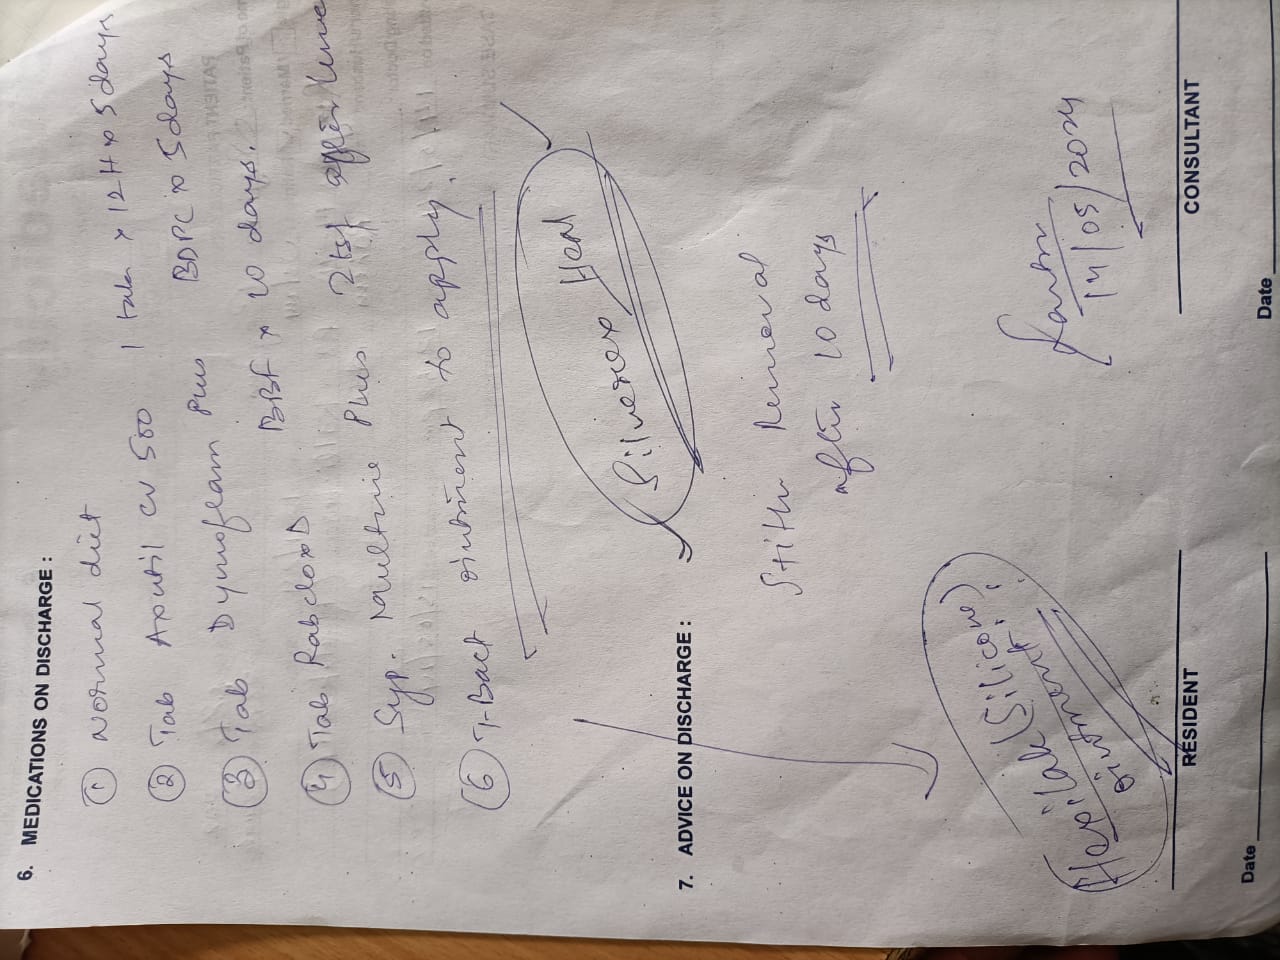 6. MEDICATIONS ON DISCHARGE :
① Normal diet
② Tab Axutil CV 500 1 tab x 12H x 5 days
③ Tab Dymoflam Plus BDPC x 5 days
④ Tab Rabclox D BBF x 10 days.
⑤ Syp. Plus 2tsf after
⑥ T-Bact ointment to apply.
Silverex Heal
7. ADVICE ON DISCHARGE :
Stitch Removal
after 10 days
(Silicone)
ointment
14/05/2024
RESIDENT CONSULTANT
Date Date